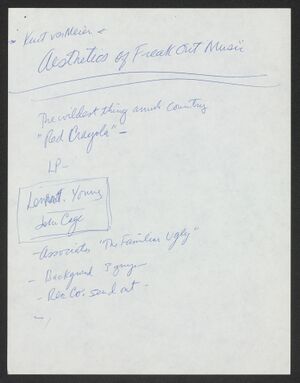 Kurt von Meier &
Aesthetics of Freak Out Music
The wildest thing country
"Red Crayola" -
LP -
Young
John Cage
- Associates "The Familiar Ugly"
- Background 3 guys
- Rec Co. send out -